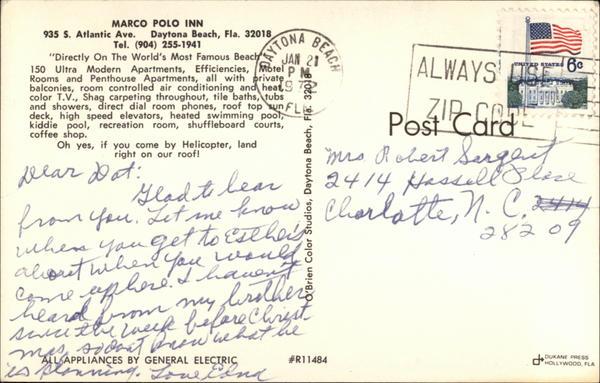 MARCO POLO INN
935 S. Atlantic Ave. Daytona Beach, Fla. 32018
Tel. (904) 255-1941
"Directly On The World's Most Famous Beach"
150 Ultra Modern Apartments, Efficiencies, Motel
Rooms and Penthouse Apartments, all with private
balconies, room controlled air conditioning and heat,
color T.V., Shag carpeting throughout, tile baths, tubs
and showers, direct dial room phones, roof top sun
deck, high speed elevators, heated swimming pool,
kiddie pool, recreation room, shuffleboard courts,
coffee shop.
Oh yes, if you come by Helicopter, land
right on our roof!
Dear Dot:
Glad to hear
from you. Let me know
when you get to Esther's
about when you would
come up here. I haven't
heard from my brother
since the week before Christ
mas, so don't know what he
is planning. Love Edna
ALL APPLIANCES BY GENERAL ELECTRIC
#R11484
O'Brien Color Studios, Daytona Beach, Fla. 32018
DAYTONA BEACH
JAN 21
PM
1972
FL
ALWAYS USE
ZIP CODE
UNITED STATES
6c
Post Card
Mrs Robert Sargent
2414 Hassell Place
Charlotte, N. C. 2414
28209
DUKANE PRESS
HOLLYWOOD, FLA